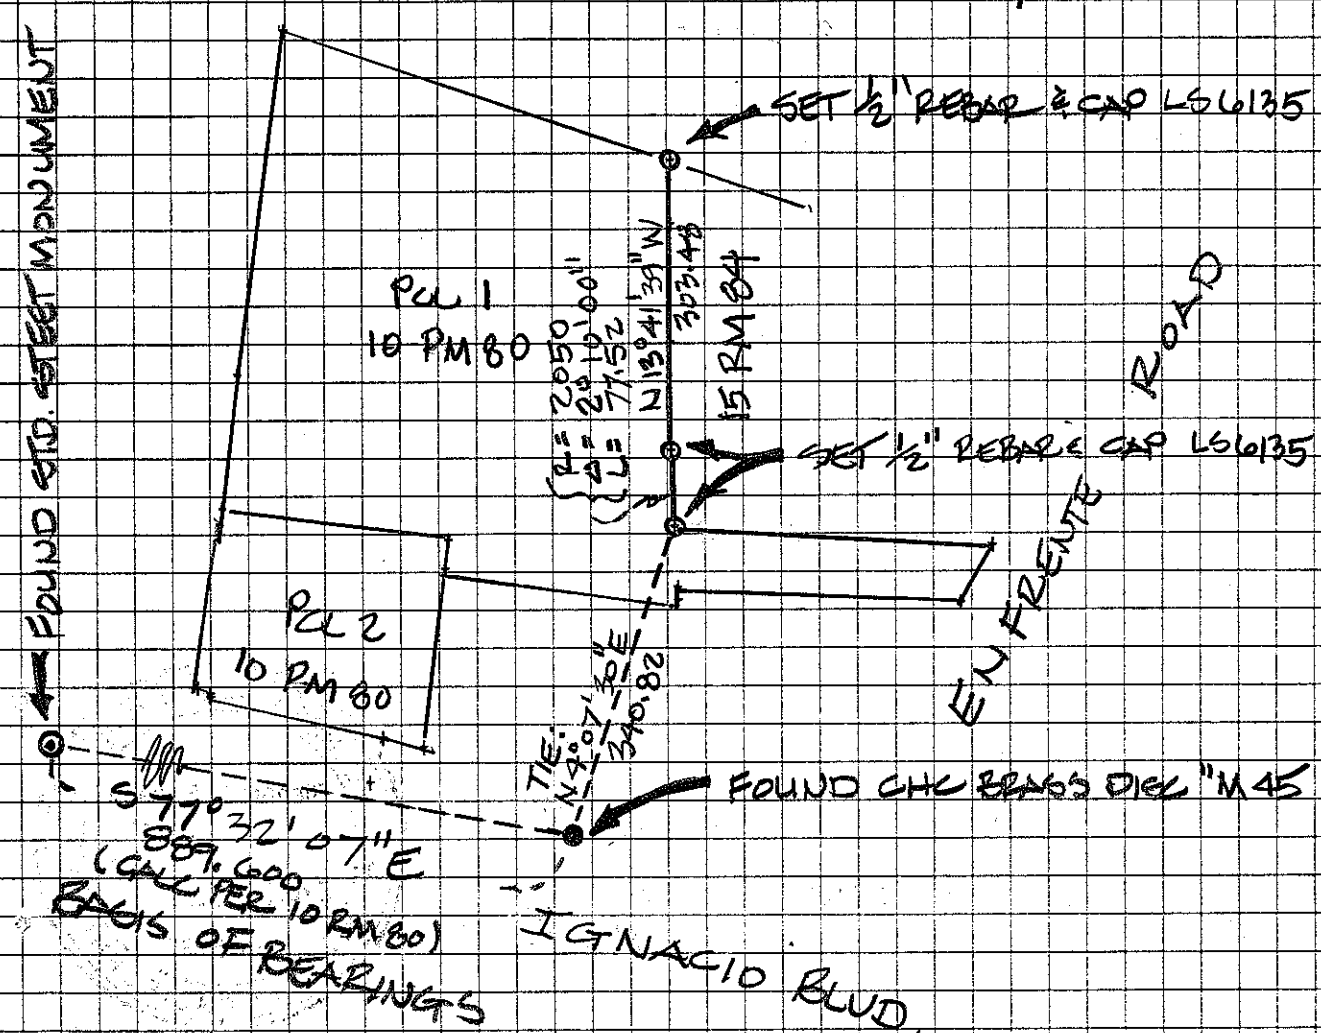 FOUND STD. STEET MONUMENT
SET 1/2" REBAR & CAP LS 6135
PCL 1
10 PM 80
R= 2050
Δ= 2°10'00"
L= 77.52
N 13°41'39" W
303.48
15 RM 84
SET 1/2" REBAR & CAP LS 6135
EN FRENTE ROAD
PCL 2
10 PM 80
TIE:
N 4°07'30" E
340.82
FOUND CHC BRASS DISC "M 45
S 77°32'07" E
889.600
(CALC PER 10 RM 80)
BASIS OF BEARINGS
IGNACIO BLVD.